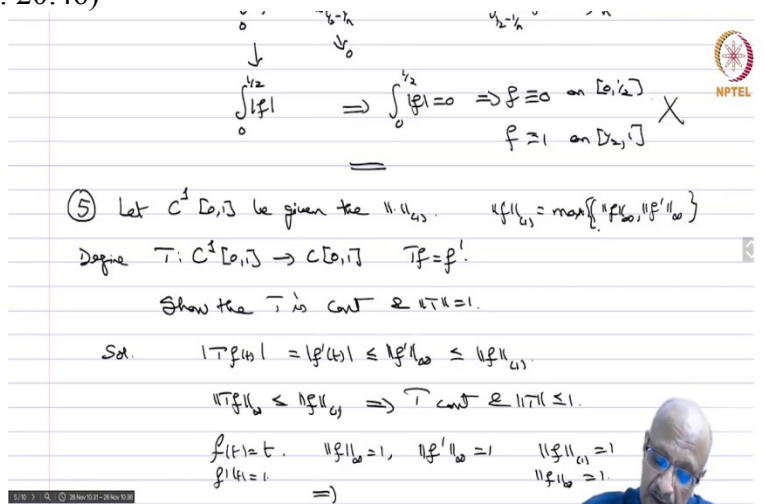 : 20:46)
0 ½-1/n ½-1/n
↓ ↓0
∫₀^{1/2} |f| ⇒ ∫₀^{1/2} |f| = 0 ⇒ f ≡ 0 on [0,½] X
f ≡ 1 on [½,1]
NPTEL
⑤ Let C¹[0,1] be given the ‖·‖₍₁₎. ‖f‖₍₁₎ = max{‖f‖∞, ‖f'‖∞}
Define T: C¹[0,1] → C[0,1] Tf = f'.
Show the T is cont & ‖T‖=1.
Sol. |Tf(t)| = |f'(t)| ≤ ‖f'‖∞ ≤ ‖f‖₍₁₎.
‖Tf‖∞ ≤ ‖f‖₍₁₎ ⇒ T cont & ‖T‖ ≤ 1.
f(t)=t. ‖f‖∞=1, ‖f'‖∞=1 ‖f‖₍₁₎=1
f'(t)=1. ‖f'‖∞=1.
⇒)
5/10 28 Nov 10:31 - 28 Nov 10:36